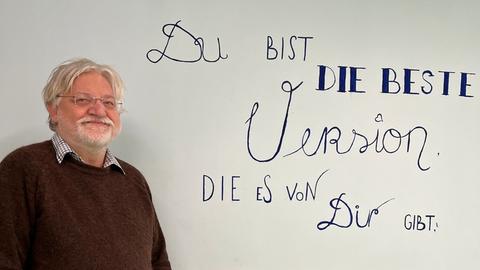 Du BIST
DIE BESTE
Version,
DIE ES VON
Dir GIBT!